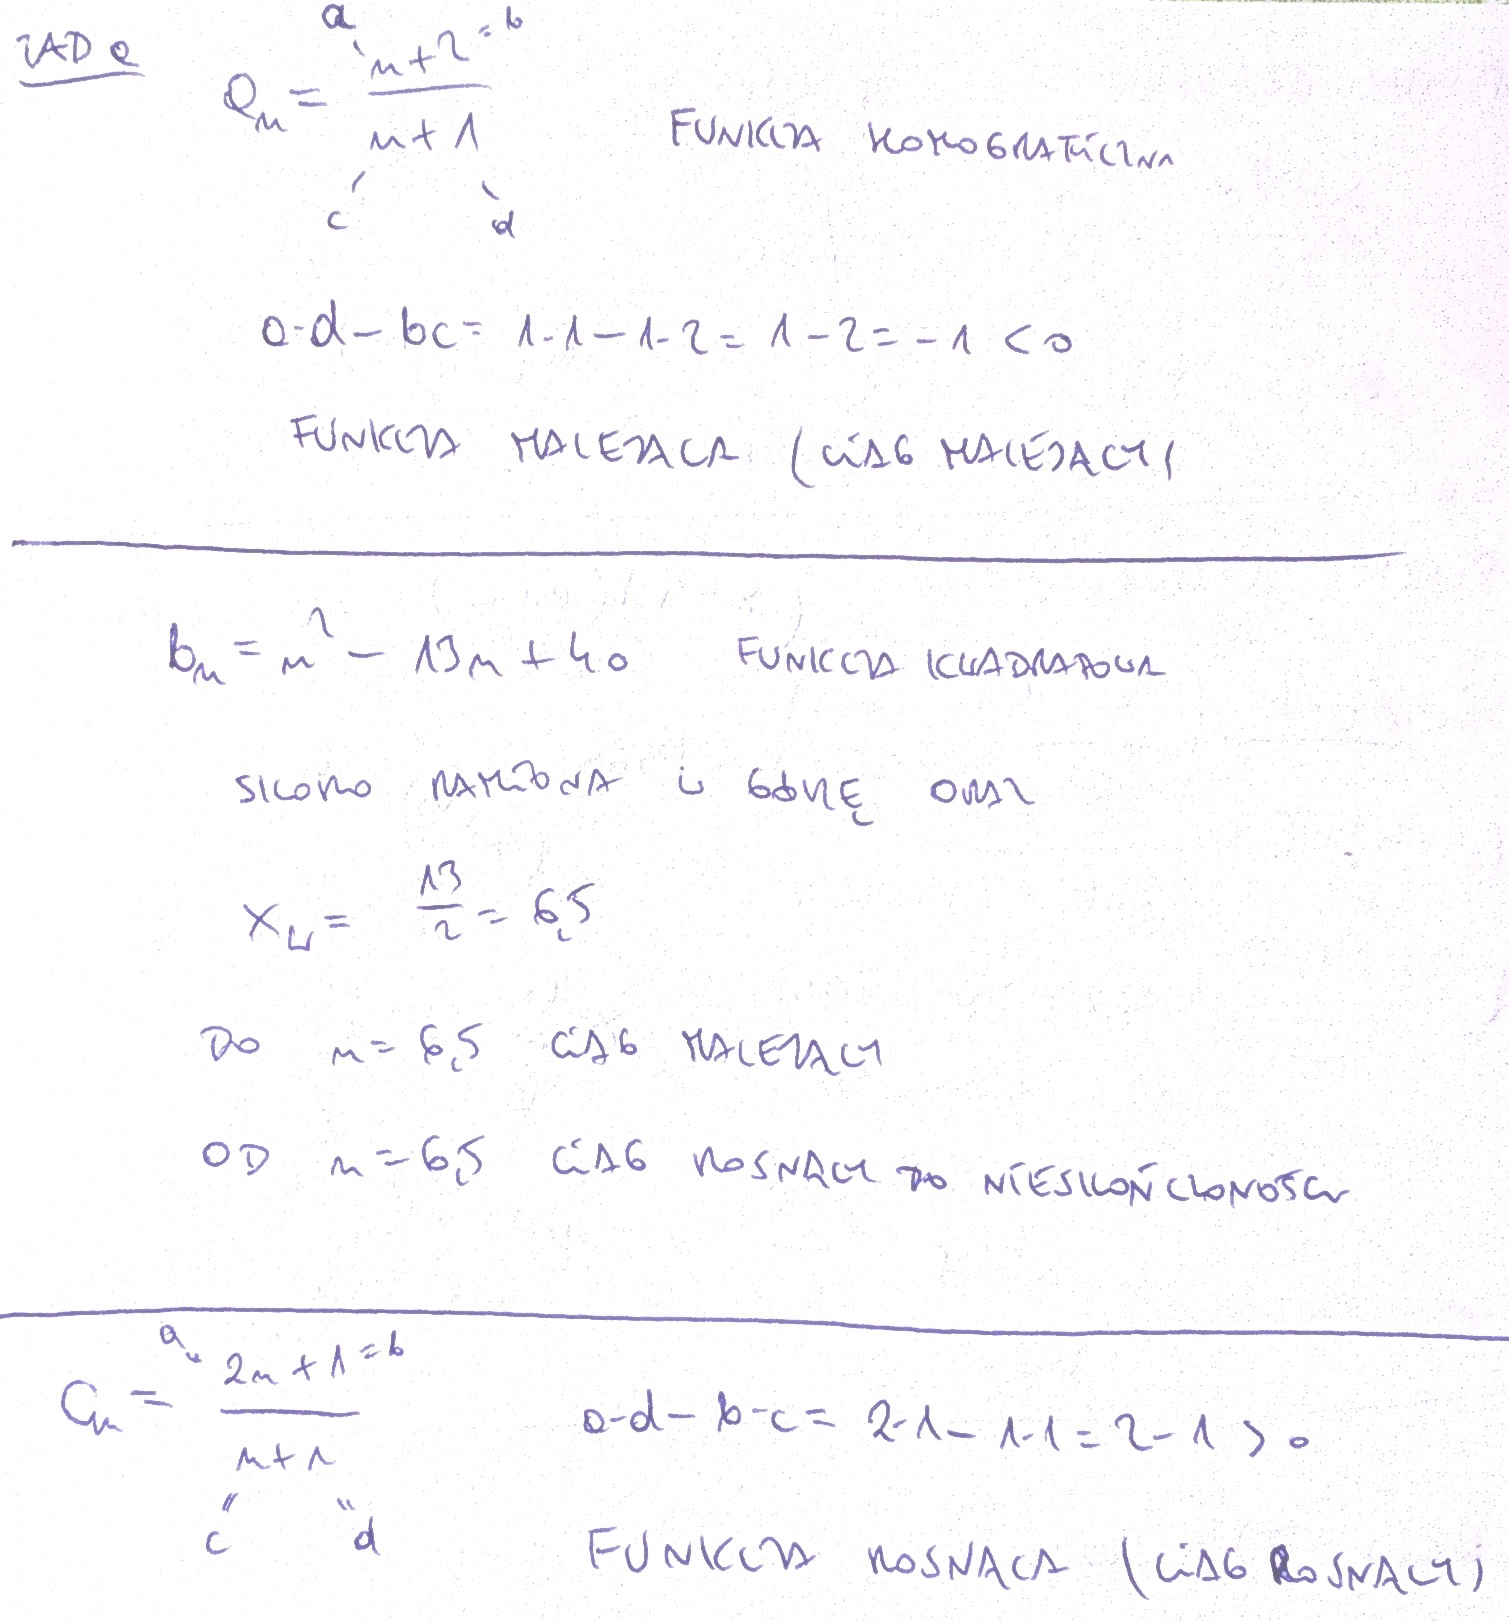 ZAD 2
a_n = \frac{n+2}{n+1}
a
= b
c
d
FUNKCJA HOMOGRAFICZNA
a·d - bc = 1·1 - 1·2 = 1 - 2 = -1 < 0
FUNKCJA MALEJĄCA (CIĄG MALEJĄCY)
b_n = n² - 13n + 40 FUNKCJA KWADRATOWA
SKORO RAMIONA W GÓRĘ ORAZ
x_w = \frac{13}{2} = 6,5
DO n = 6,5 CIĄG MALEJĄCY
OD n = 6,5 CIĄG ROSNĄCY DO NIESKOŃCZONOŚCI
c_n = \frac{2n+1}{n+1}
a
= b
c
d
a·d - b·c = 2·1 - 1·1 = 2 - 1 > 0
FUNKCJA ROSNĄCA (CIĄG ROSNĄCY)